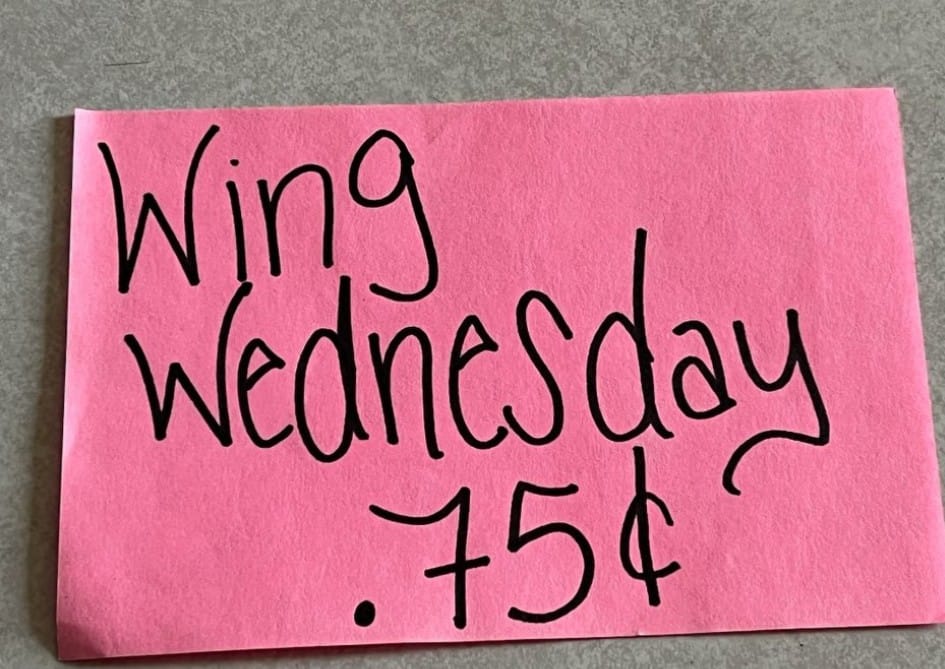 Wing
Wednesday
.75¢